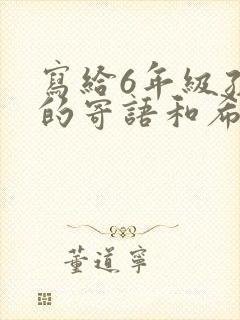 寫給6年級孩
的寄語和希
董道寧